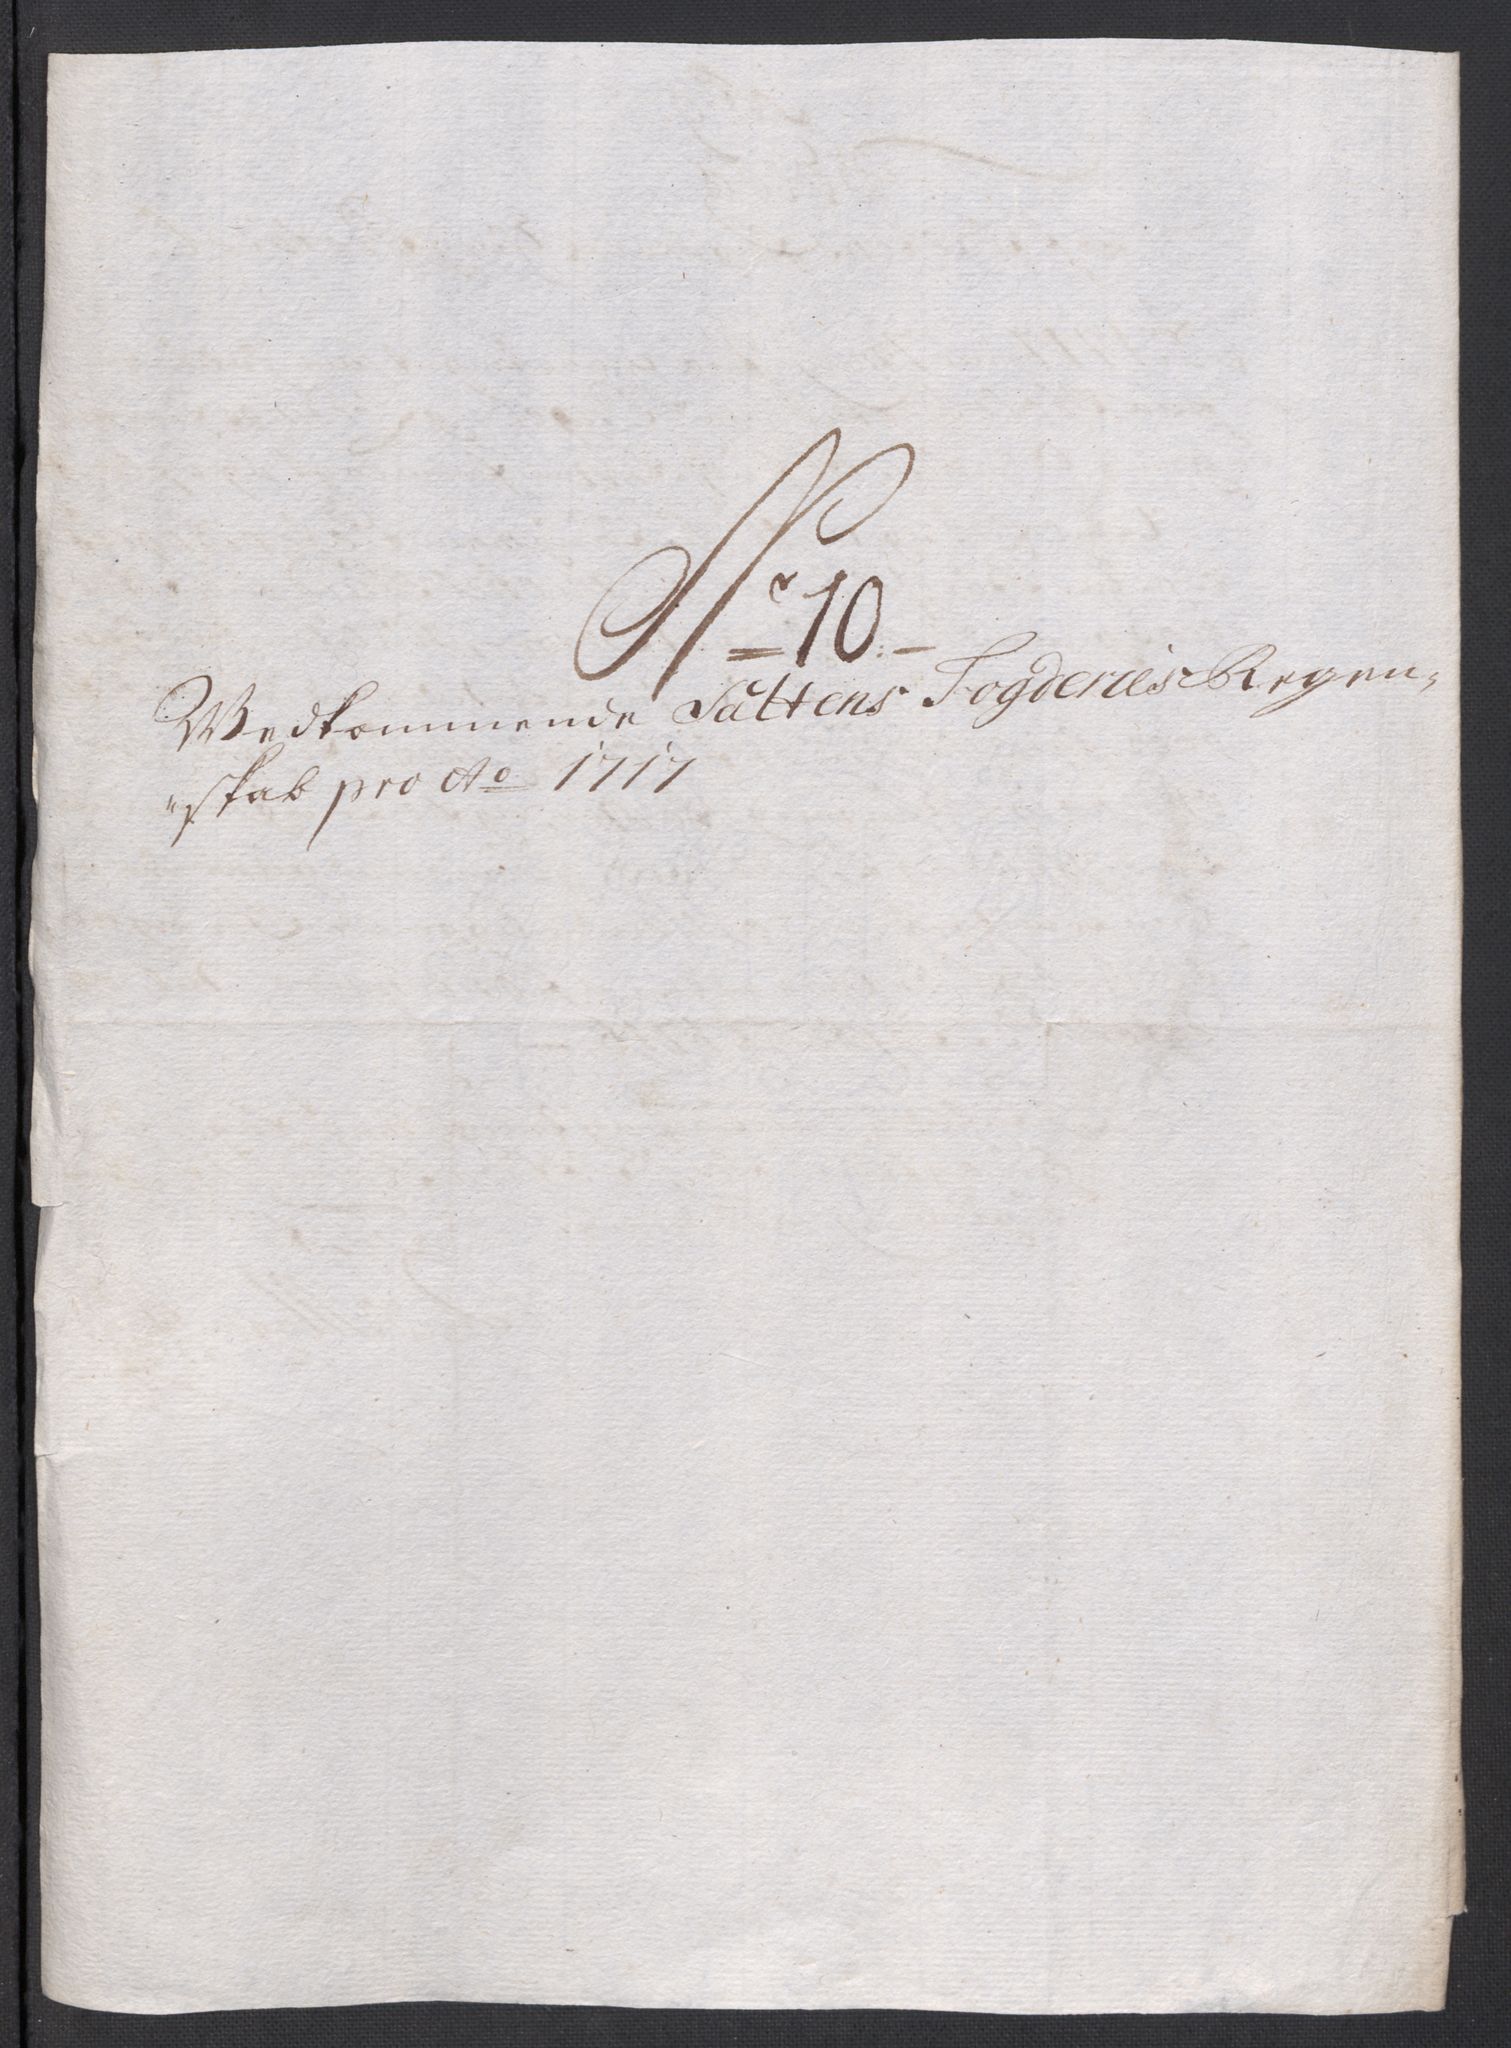 Nr 10.
Wedkommende Saltens Fogderies Regen-
skab pro Ao 1717